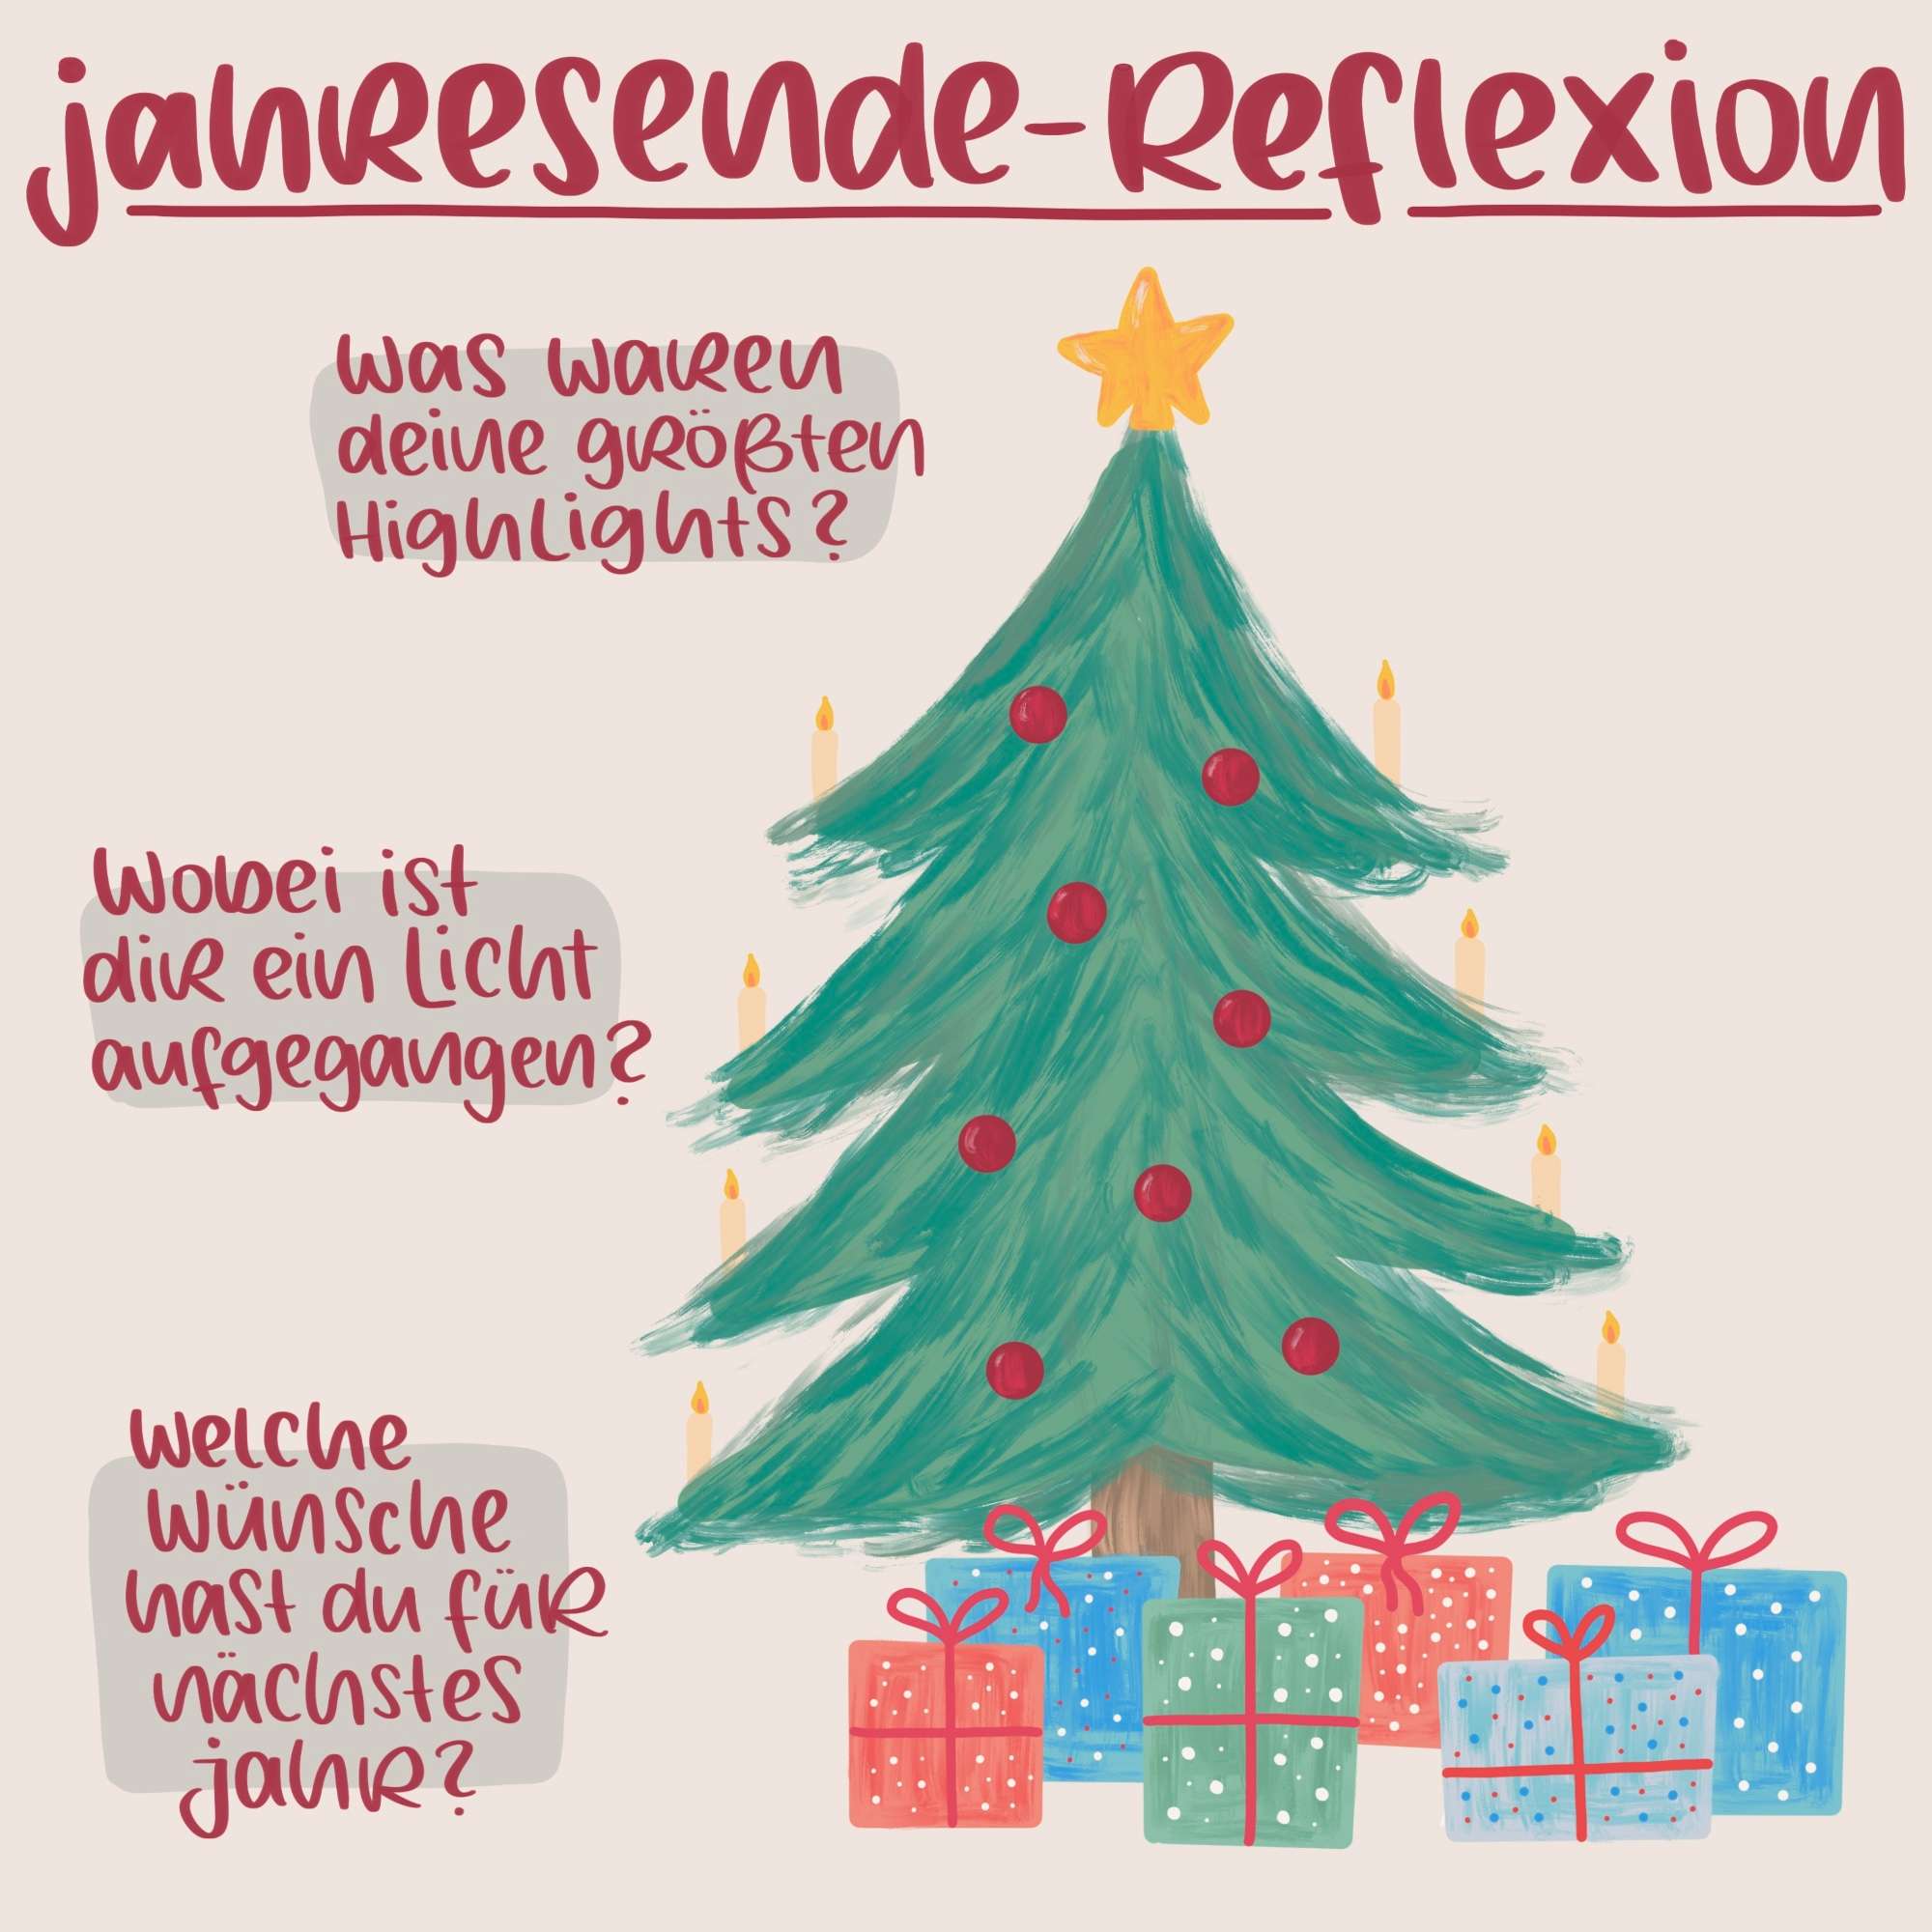 jahresende-Reflexion
Was waren
deine größten
Highlights?
Wobei ist
dir ein Licht
aufgegangen?
Welche
Wünsche
hast du für
nächstes
jahr?